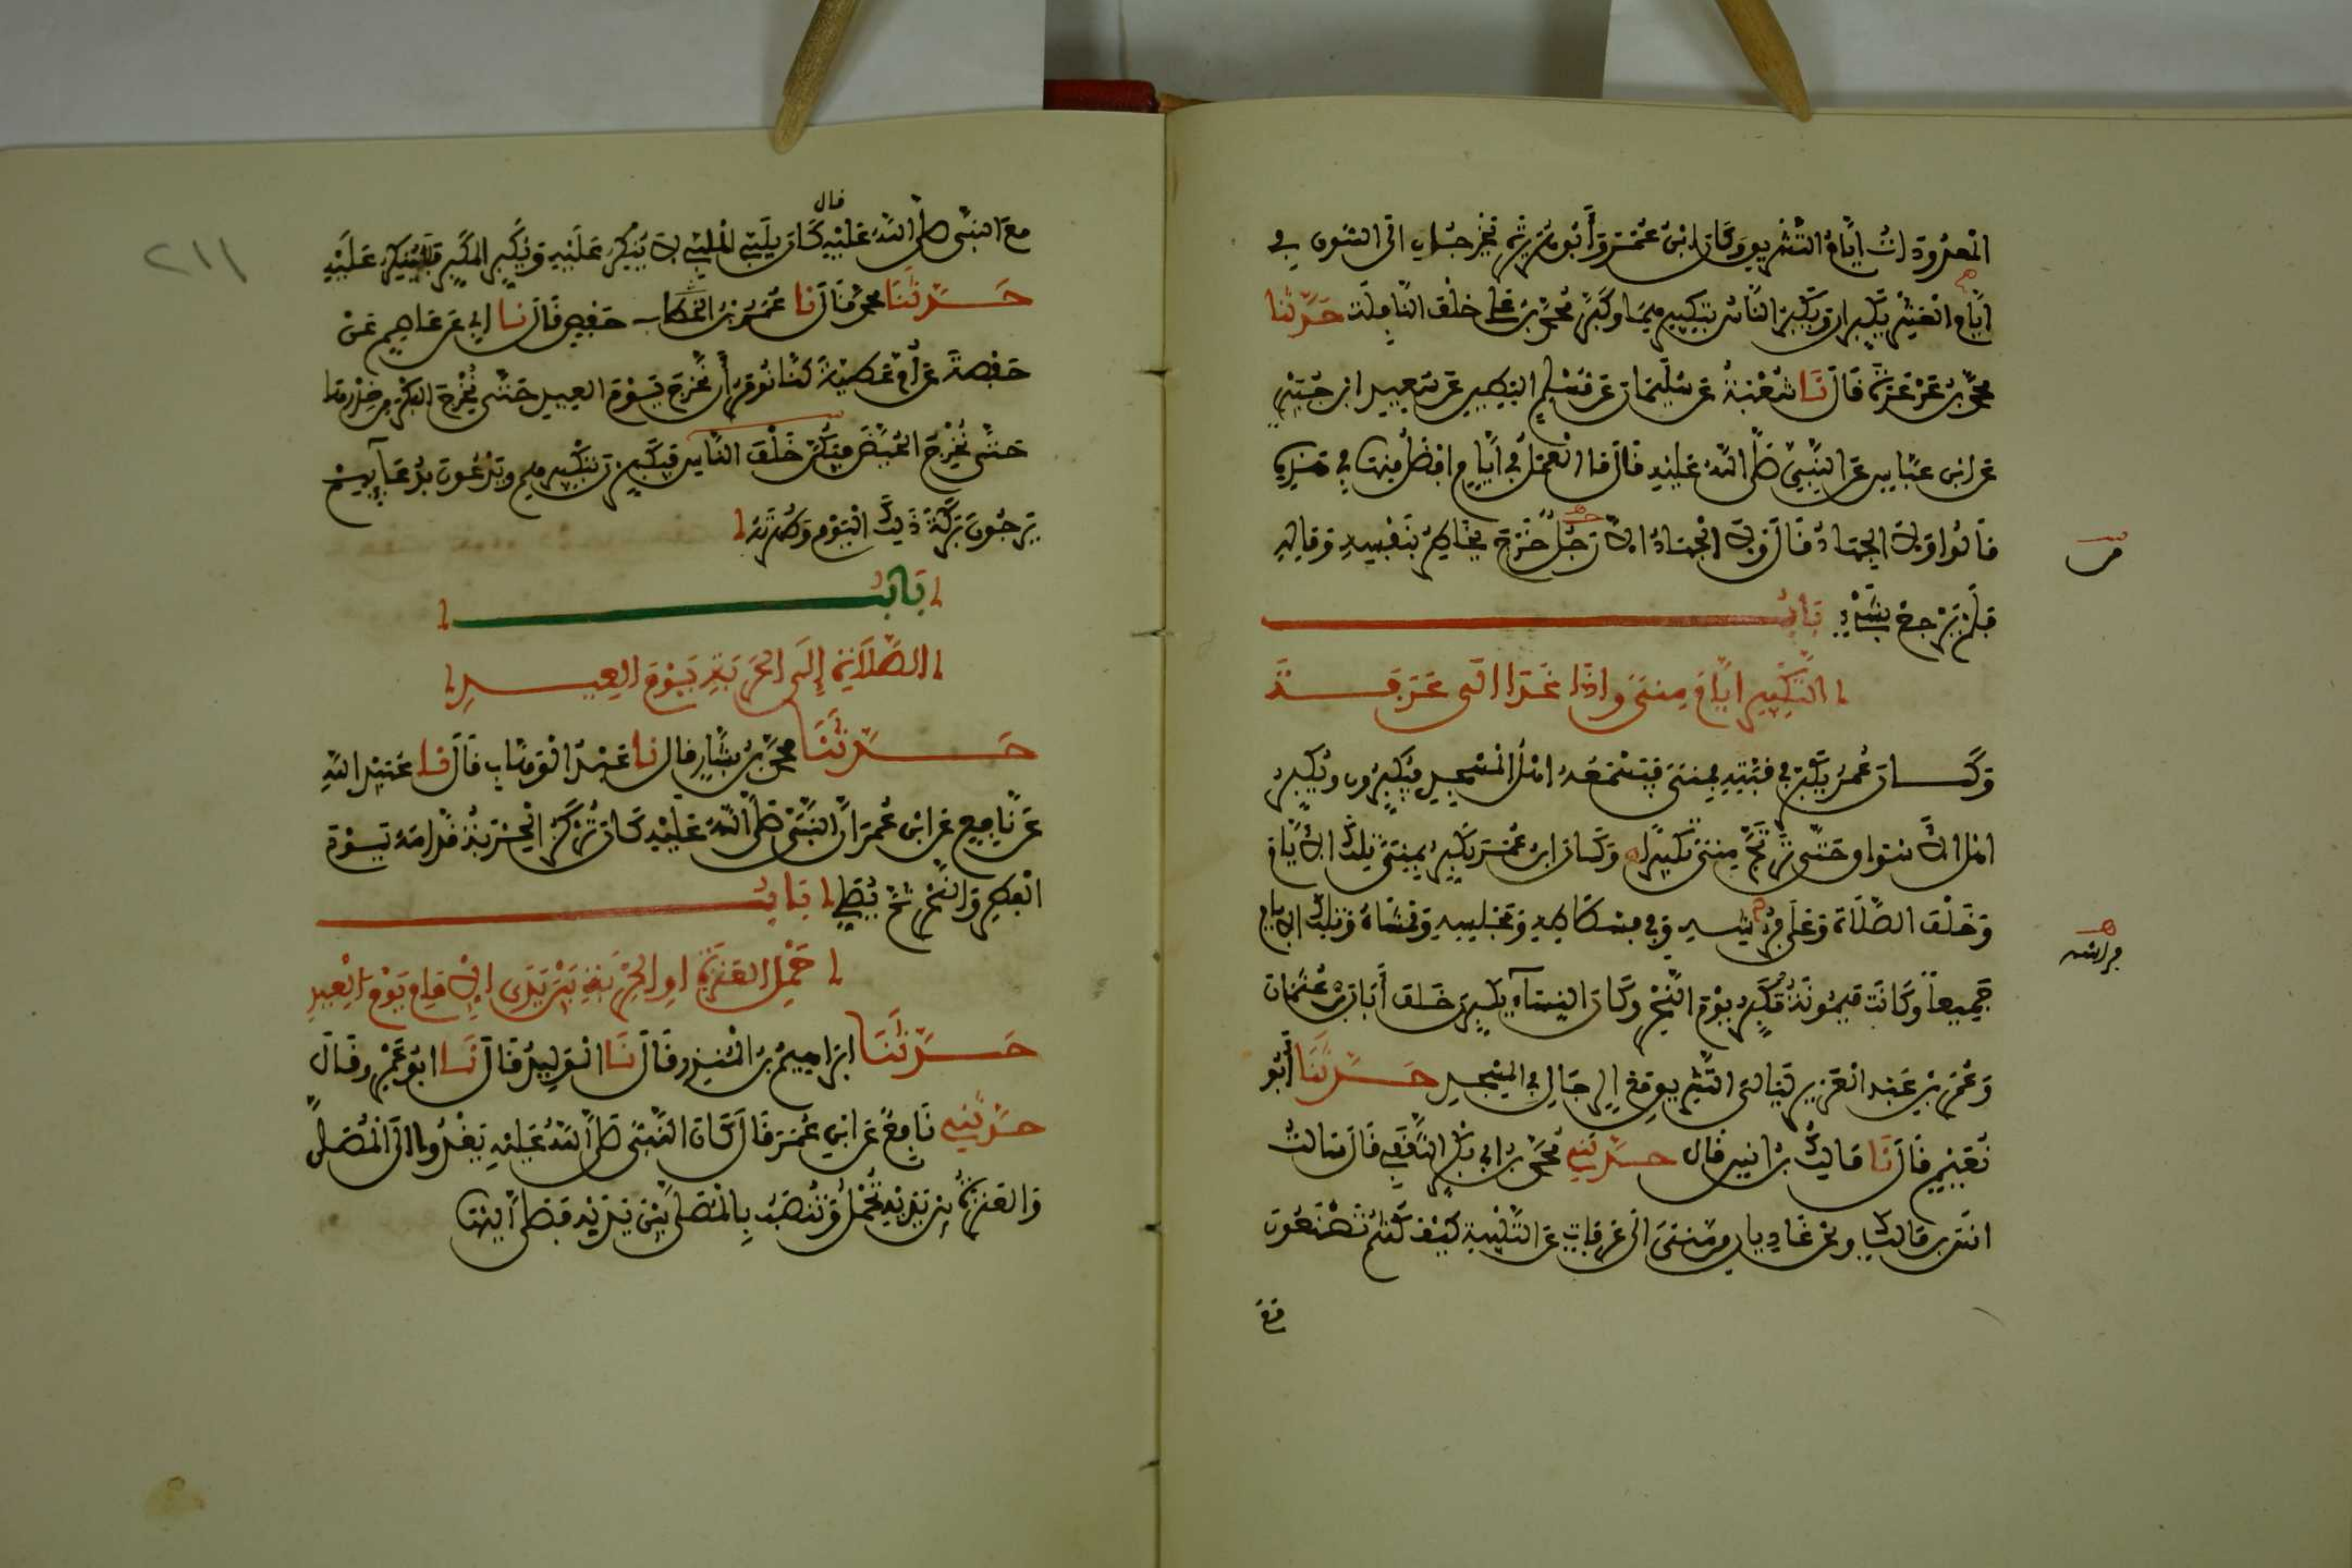 المعدودات ايام التشريق وكان ابن عمر وأبو هريرة يخرجان الى السوق في
ايام العشر يكبران ويكبر الناس بتكبيرهما وكبر محمد بن علي خلف النافلة حدثنا
محمد بن عرعرة قال نا شعبة عن سليمان عن مسلم البطين عن سعيد ابن جبير
عن ابن عباس عن النبي صلى الله عليه قال ما العمل في أيام افضل منها في هذه
قالوا ولا الجهاد قال ولا الجهاد الا رجل خرج يخاطر بنفسه وماله
فلم يرجع بشيء باب
التكبير ايام منى واذا غدا الى عرفة
وكان عمر يكبر في قبته بمنى فيسمعه اهل المسجد فيكبرون ويكبر
اهل الاسواق حتى ترتج منى تكبيرا وكان ابن عمر يكبر بمنى تلك الايام
وخلف الصلاة وعلى فراشه وفي فسطاطه ومجلسه وممشاه وتلك الايام
جميعا وكانت ميمونة تكبر يوم النحر وكان النساء يكبرن خلف أبان بن عثمان
وعمر بن عبد العزيز ليالي التشريق مع الرجال في المسجد حدثنا أبو
نعيم قال نا مالك بن انس قال حدثني محمد بن ابي بكر الثقفي قال سالت
انس بن مالك ونحن غاديان من منى الى عرفات عن التلبية كيف كنتم تصنعون
مع
مع النبي صلى الله عليه قال كان يلبي الملبي لا ينكر عليه ويكبر المكبر فلا ينكر عليه
حدثنا محمد قال نا عمر بن حفص قال نا ابي عن عاصم عن
حفصة عن أم عطية كنا نومر أن نخرج يوم العيد حتى نخرج البكر من خدرها
حتى نخرج الحيض فيكن خلف الناس فيكبرن بتكبيرهم ويدعون بدعآئهم
يرجون بركة ذلك اليوم وطهرته
باب
الصلاة إلى الحربة يوم العيد
حدثنا محمد بن بشار قال نا عبد الوهاب قال نا عبيد الله
عن نافع عن ابن عمر ان النبي صلى الله عليه كان تركز الحربة قدامه يوم
الفطر والنحر ثم يصلي باب
حمل العنزة او الحربة بين يدي الامام يوم العيد
حدثنا ابراهيم بن المنذر قال نا الوليد قال نا ابو عمرو قال
حدثني نافع عن ابن عمر قال كان النبي صلى الله عليه يغدو الى المصلى
والعنزة بين يديه تحمل وتنصب بالمصلى بين يديه فيصلي اليها
٢١١